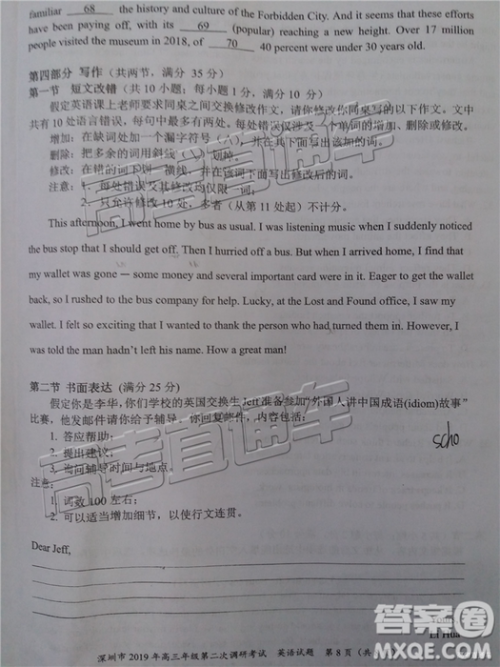 familiar 68 the history and culture of the Forbidden City. And it seems that these efforts
have been paying off, with its 69 (popular) reaching a new height. Over 17 million
people visited the museum in 2018, of 70 40 percent were under 30 years old.
第四部分 写作（共两节，满分 35 分）
第一节 短文改错（共 10 小题；每小题 1 分，满分 10 分）
假定英语课上老师要求同桌之间交换修改作文，请你修改你同桌写的以下作文。文中
共有 10 处语言错误，每句中最多有两处。每处错误仅涉及一个单词的增加、删除或修改。
增加：在缺词处加一个漏字符号（∧），并在其下面写出该加的词。
删除：把多余的词用斜线（\）划掉。
修改：在错的词下划一横线，并在该词下面写出修改后的词。
注意：1. 每处错误及其修改均仅限一词。
2. 只允许修改 10 处，多者（从第 11 处起）不计分。
This afternoon, I went home by bus as usual. I was listening music when I suddenly noticed
the bus stop that I should get off. Then I hurried off a bus. But when I arrived home, I find that
my wallet was gone — some money and several important card were in it. Eager to get the wallet
back, so I rushed to the bus company for help. Lucky, at the Lost and Found office, I saw my
wallet. I felt so exciting that I wanted to thank the person who had turned them in. However, I
was told the man hadn't left his name. How a great man!
第二节 书面表达 (满分 25 分)
假定你是李华，你们学校的英国交换生 Jeff 准备参加“外国人讲中国成语(idiom)故事”
比赛，他发邮件请你给予辅导。你回复邮件，内容包括：
1. 答应帮助；
2. 提出建议；
3. 询问辅导时间与地点。
注意：
1. 词数 100 左右；
2. 可以适当增加细节，以使行文连贯。
scho
Dear Jeff,
Li Hua
深圳市 2019 年高三年级第二次调研考试 英语试题 第 8 页（共
高考直通车
高考直通车
答案圈
MXQE.COM